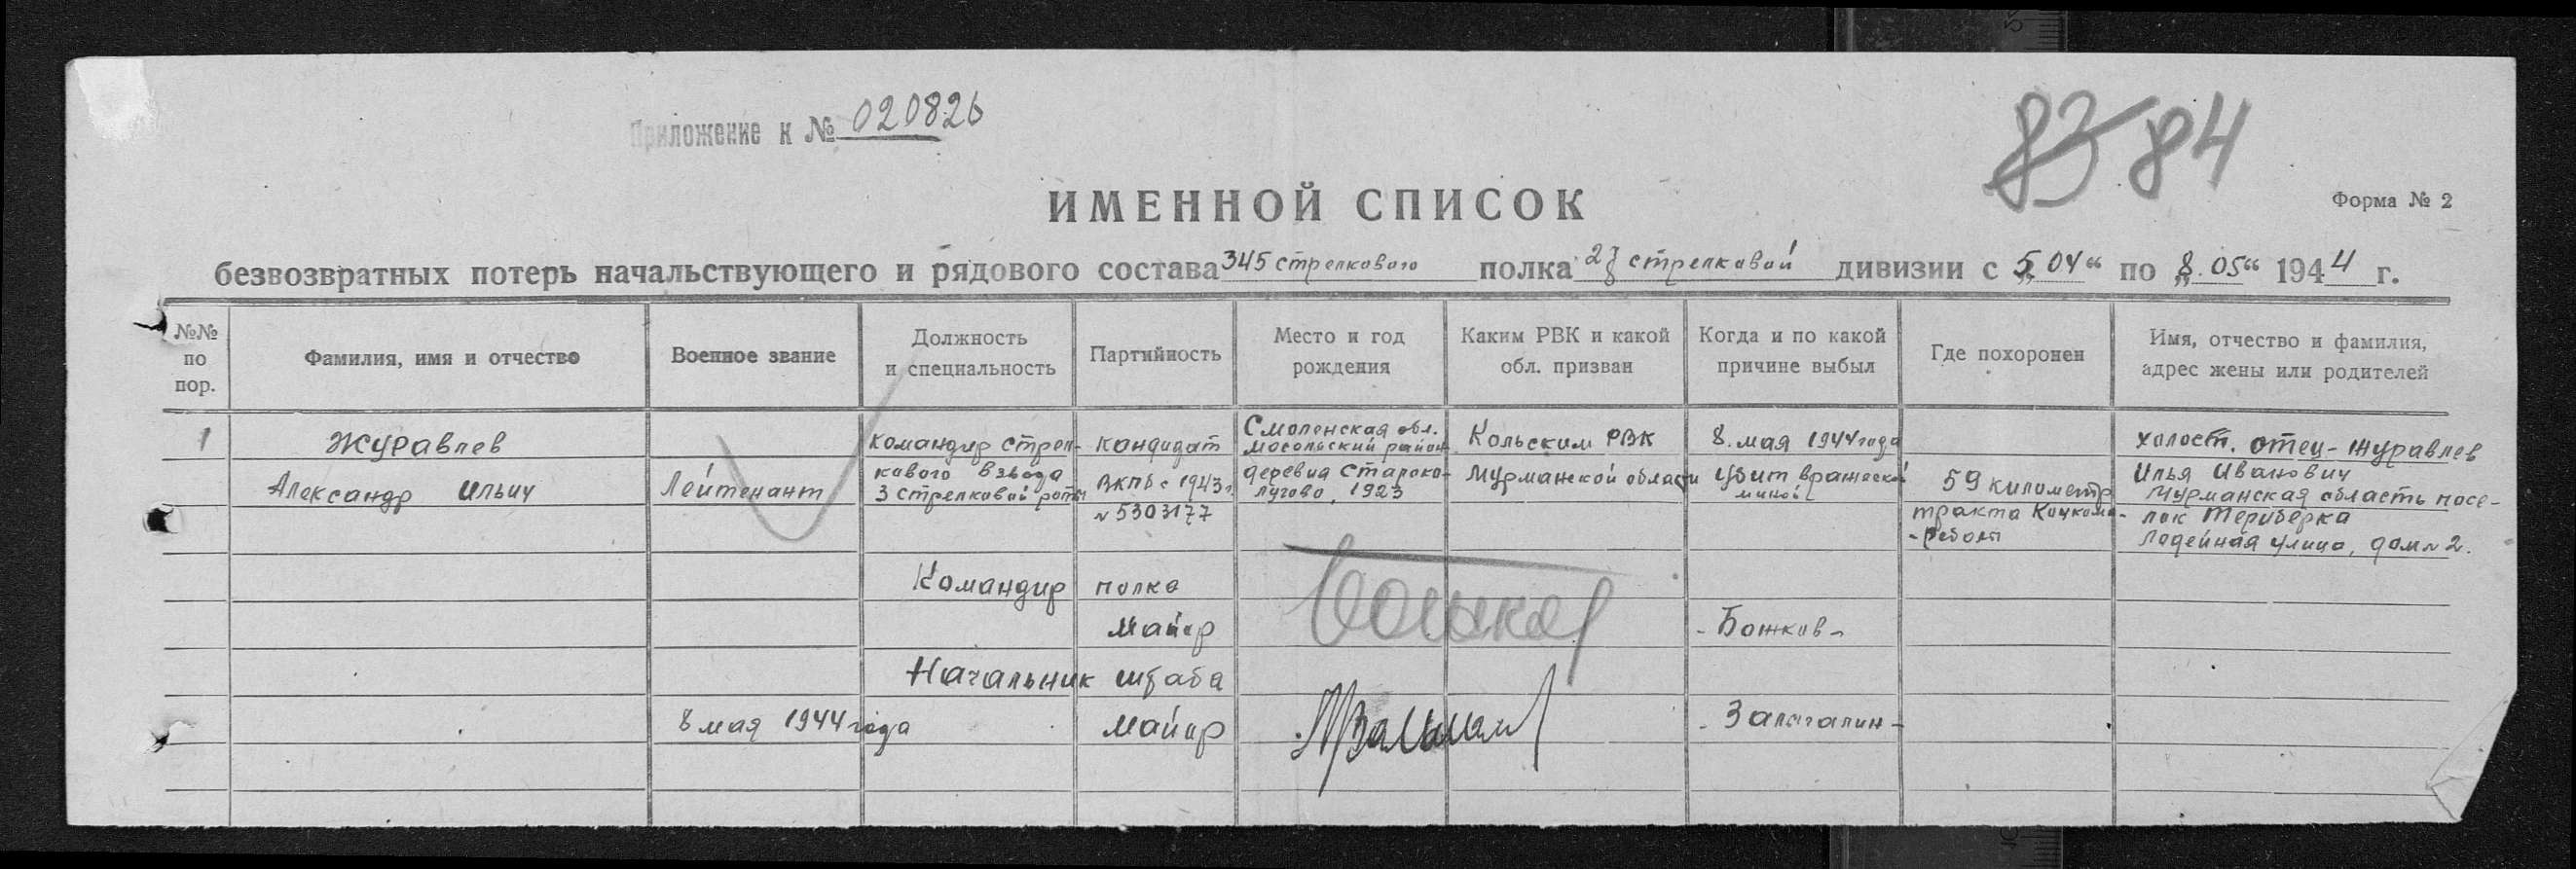 Приложение к № 020826
83 84
ИМЕННОЙ СПИСОК
Форма № 2
безвозвратных потерь начальствующего и рядового состава 345 стрелкового полка 27 стрелковой дивизии с „5.04“ по „8.05“ 1944 г.
№№ по пор.
Фамилия, имя и отчество
Военное звание
Должность и специальность
Партийность
Место и год рождения
Каким РВК и какой обл. призван
Когда и по какой причине выбыл
Где похоронен
Имя, отчество и фамилия, адрес жены или родителей
1
Журавлев
Александр Ильич
Лейтенант
Командир стрел-
кового взвода
3 стрелковой роты
кандидат
ВКПб с 1943 г.
№ 5303177
Смоленская обл.
Мосальский район
деревня Староко-
лугово, 1923
Кольским РВК
Мурманской области
8. мая 1944 года
убит вражеской
миной
59 километр
тракта Кочкома-
-Реболы
холост. отец - Журавлев
Илья Иванович
Мурманская область посе-
лок Териберка
Лодейная улица, дом № 2.
Командир полка
Майор
- Божков -
Начальник штаба
8 мая 1944 года
Майор